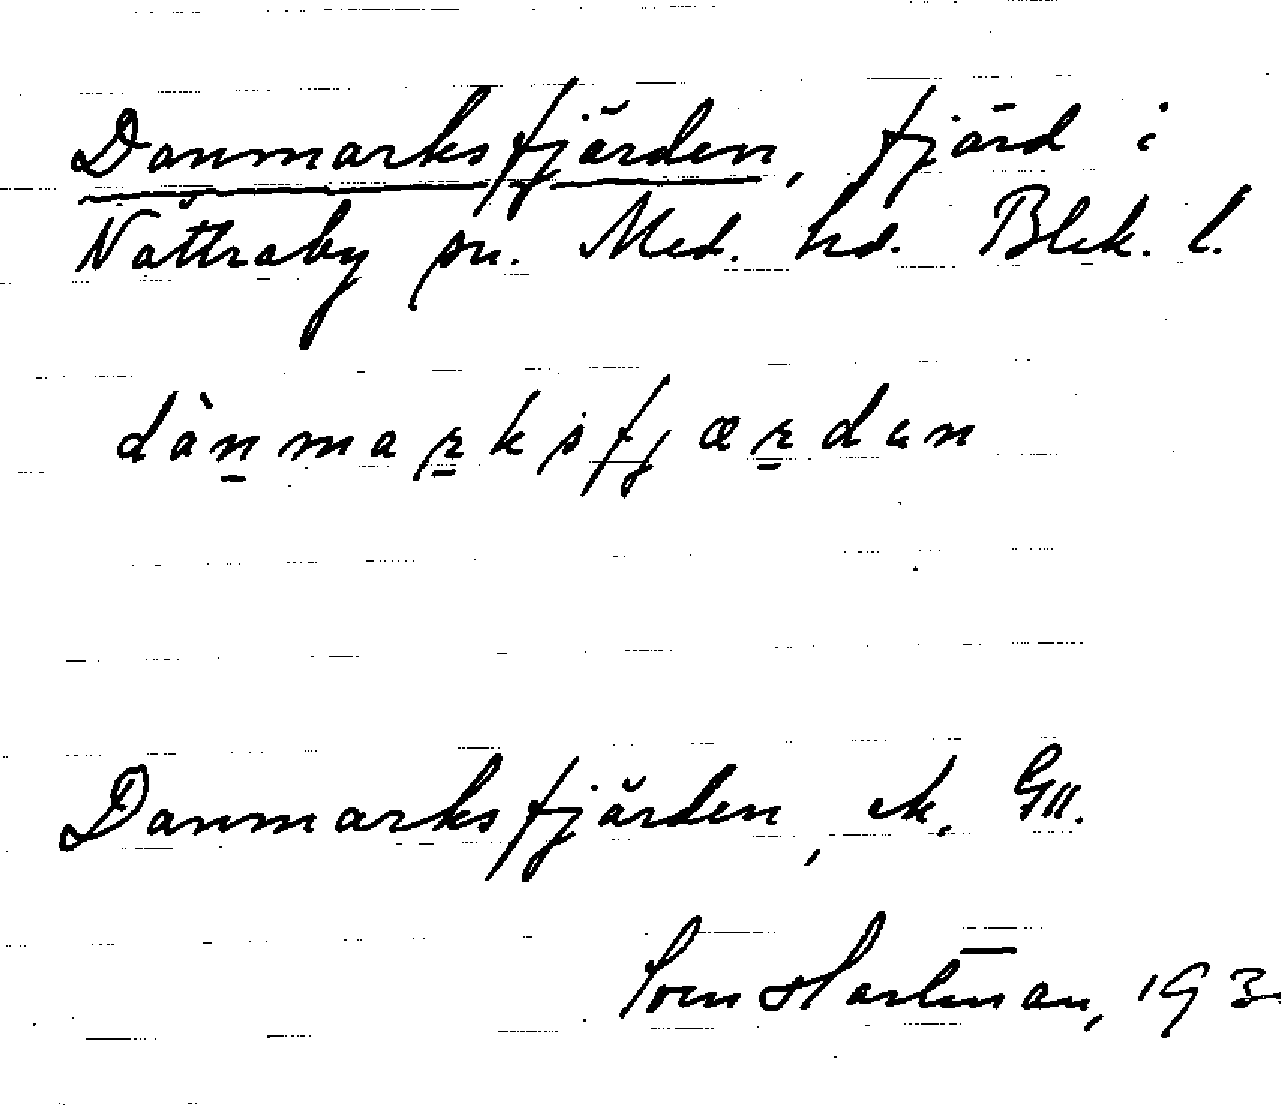 Danmarksfjärden, fjärd i
Nättraby sn. Med. hd. Blek. l.
dànmarksfjærdən
Danmarksfjärden, ek. G11.
Sven Hartman, 193